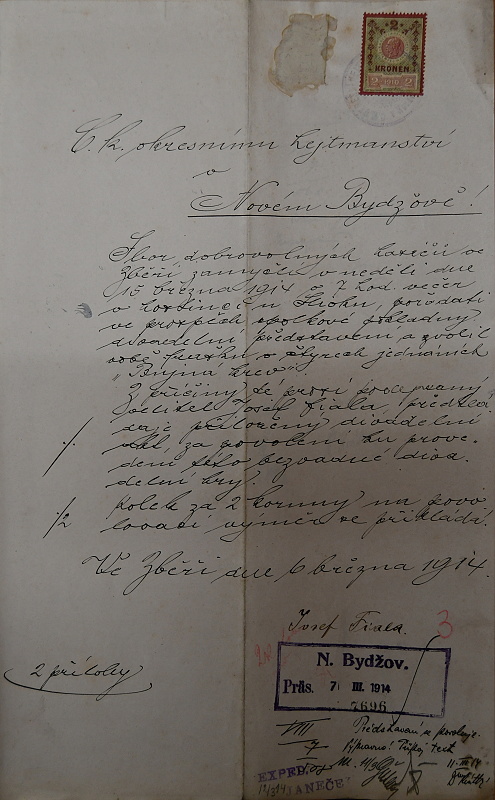 2
KRONEN
2 1910 2
C. k. okresnímu hejtmanství
v
Novém Bydžově!
Sbor dobrovolných hasičů ve
Zběři zamýšlí v neděli dne
15 března 1914 o 7 hod. večer
v hostinci u Fišků, pořádati
ve prospěch spolkové pokladny
divadelní představení a zvolil
sobě frašku o čtyrech jednáních
„Bujná krev"
Z příčiny té prosí podepsaný
velitel Josef Fiala, předklá
daje přiložený divadelní
·/. za povolení ku prove-
dení této bezvadné diva-
delní hry.
·/2 Kolek za 2 koruny na povo
lovací výměr se přikládá.
Ve Zběři dne 6 března 1914.
Josef Fiala.
3
2 přílohy
N. Bydžov.
Präs. 7 III. 1914
7696
VIII
7
Představení se povoluje.
EXPED.
JANEČEK